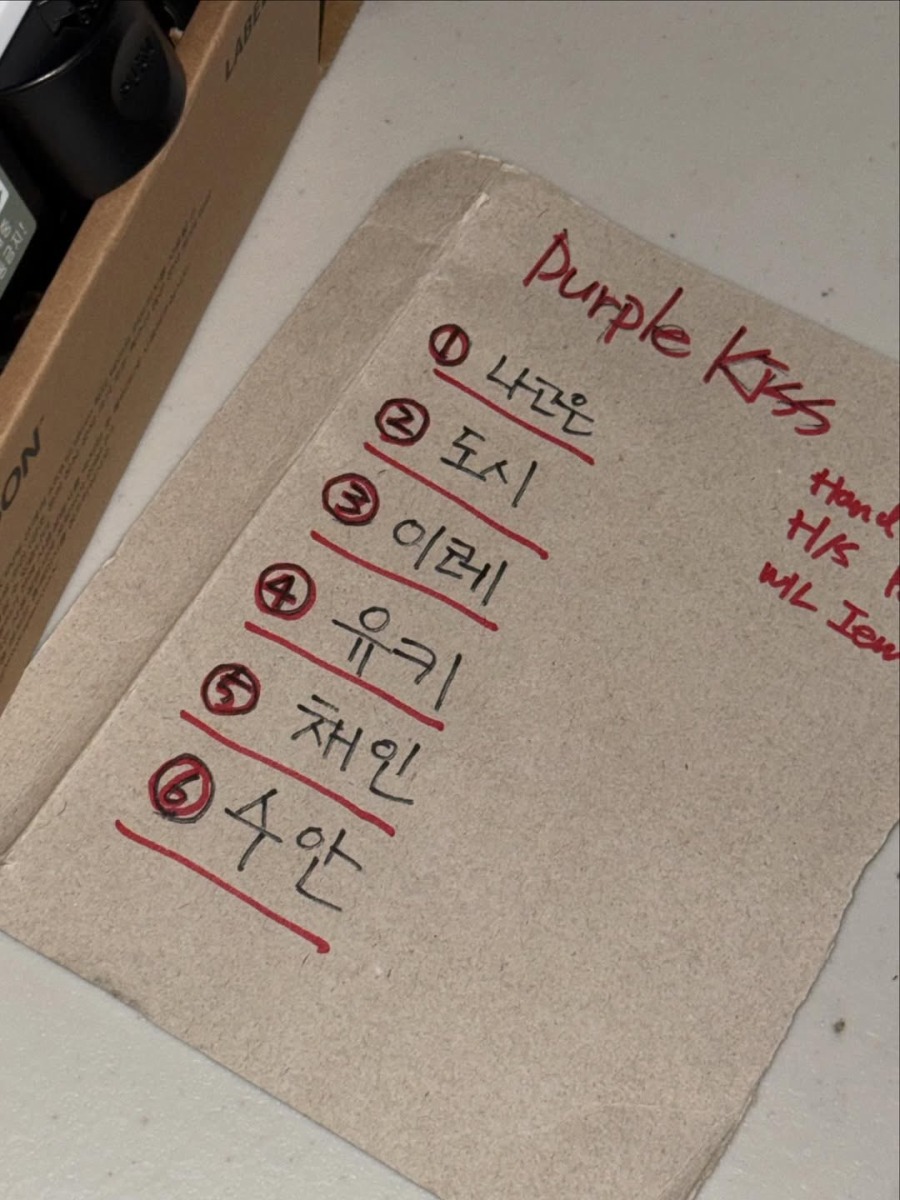 Purple Kiss
① 나고은
② 도시
③ 이레
④ 유키
⑤ 채인
⑥ 수안
Hand
H/S
ML Iem
LABE
ON